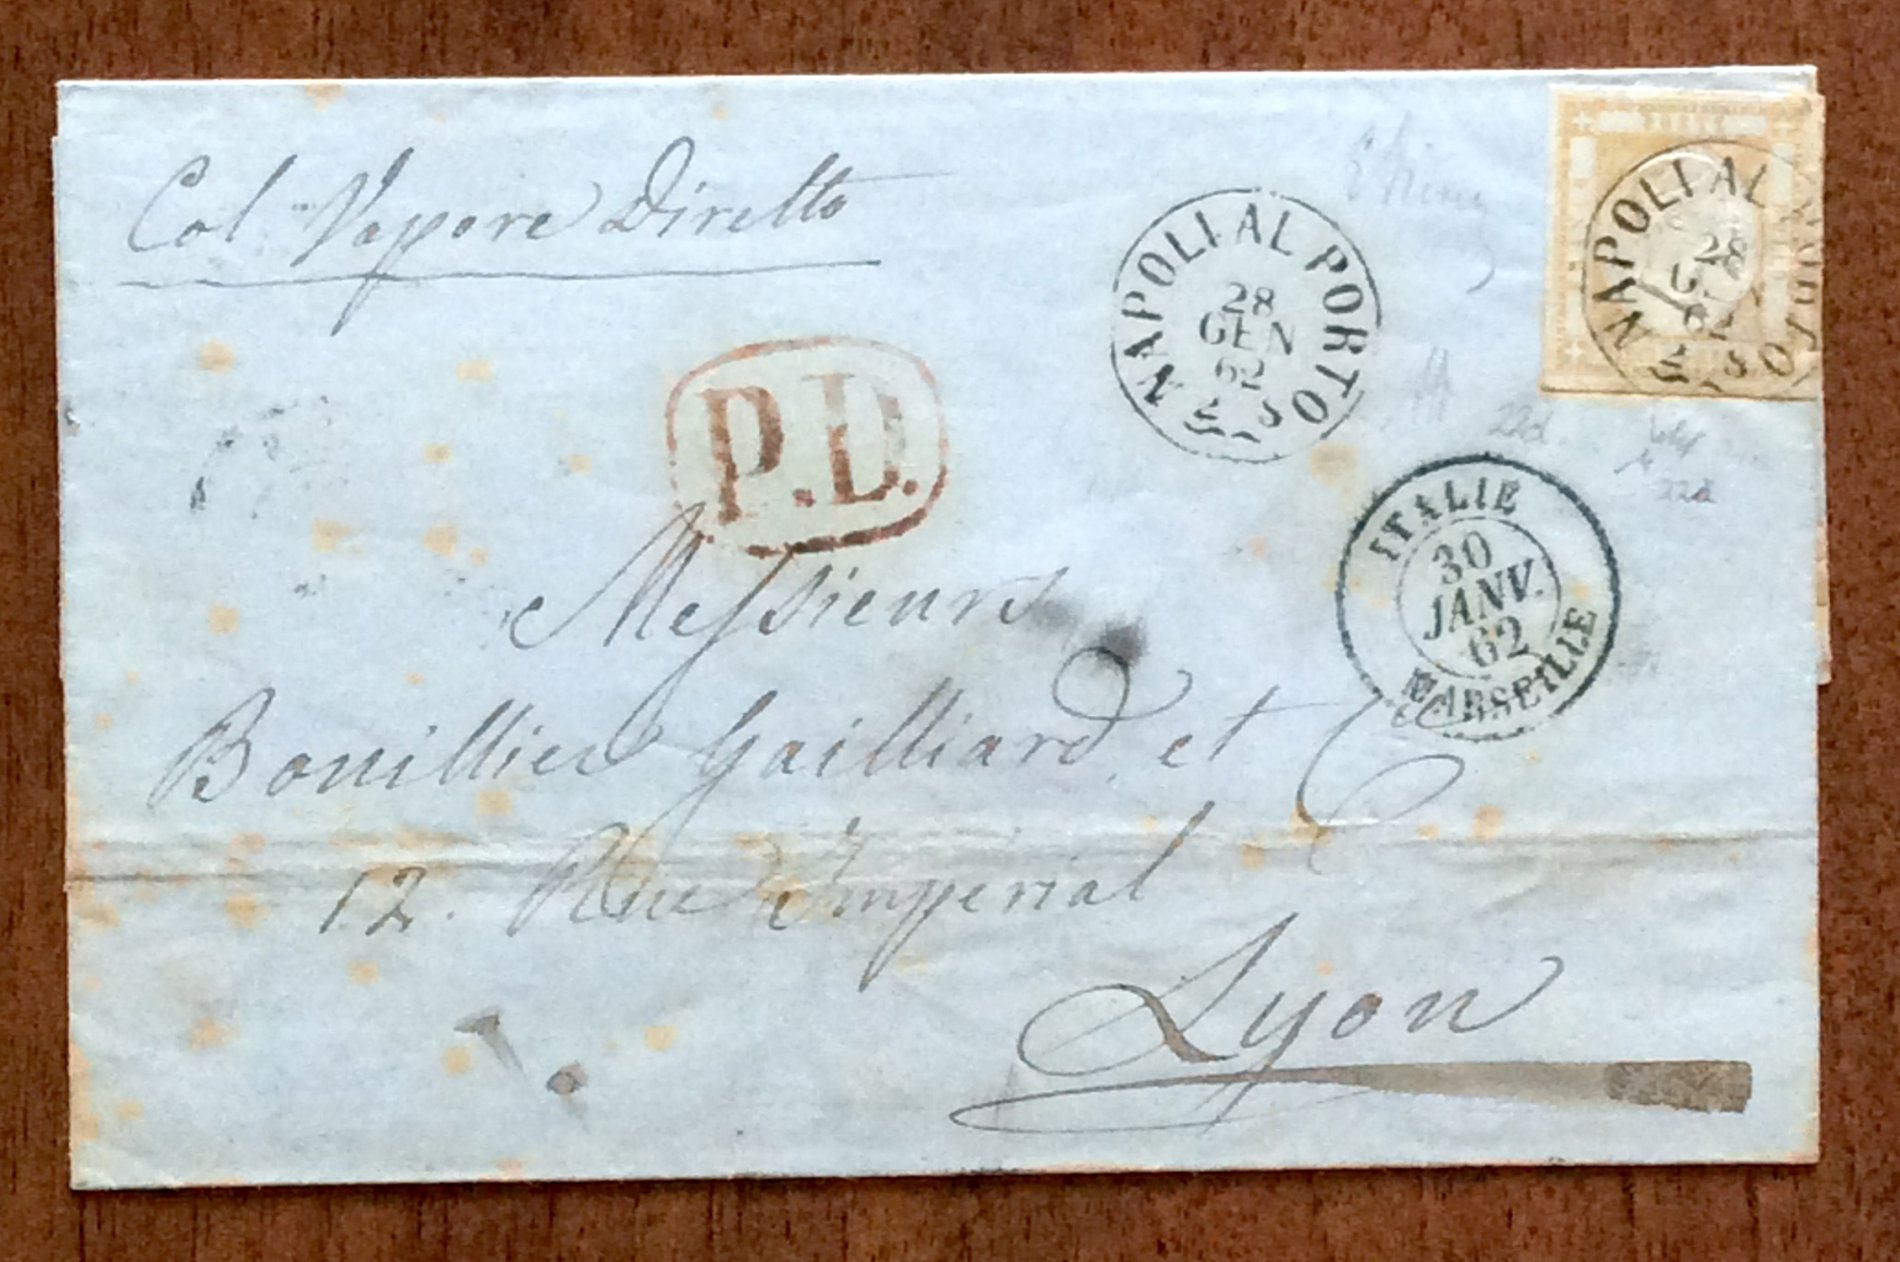 Col Vapore Diretto
NAPOLI AL PORTO
28
GEN
62
2 S
NAPOLI AL PORTO
28
GEN
62
P.D.
ITALIE
30
JANV.
62
MARSEILLE
22d
22d
Messieurs
Bouillier Gailliard et C
12. Rue Impérial
Lyon